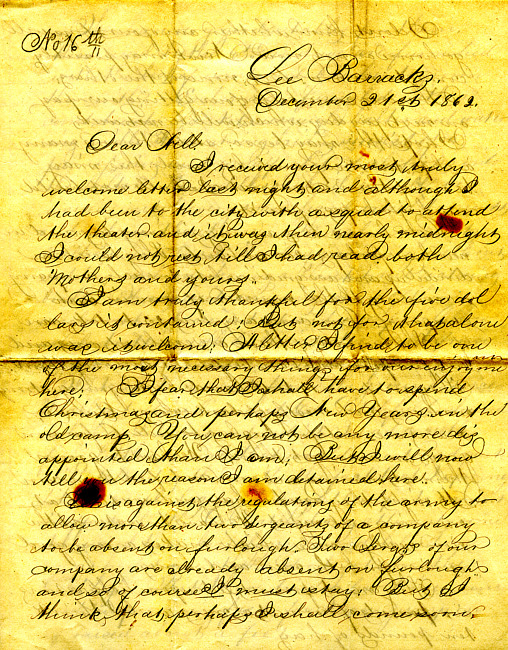 No 16th
11
Lee Barracks.
December 21st 1862.
Dear Nell
I received your most truly
welcome letter last night and although I
had been to the city with a squad to attend
the theater and it was then nearly midnight
I could not rest till I had read both
Mothers and yours.
I am truly thankful for the five dol
lars it contained; But not for that alone
was it welcome; A letter I find to be one
of the most necessary things for our enjoyme
here; I fear that I shall have to spend
Christmas and perhaps New Years in the
old camp. You can not be any more dis
appointed than I am; But I will now
tell you the reason I am detained here.
It is against the regulations of the army to
allow more than two sergeants of a company
to be absent on furlough. Two Sergts of our
company are already absent on furlough
and so of course I must stay; But I
think that perhaps I shall come soon.